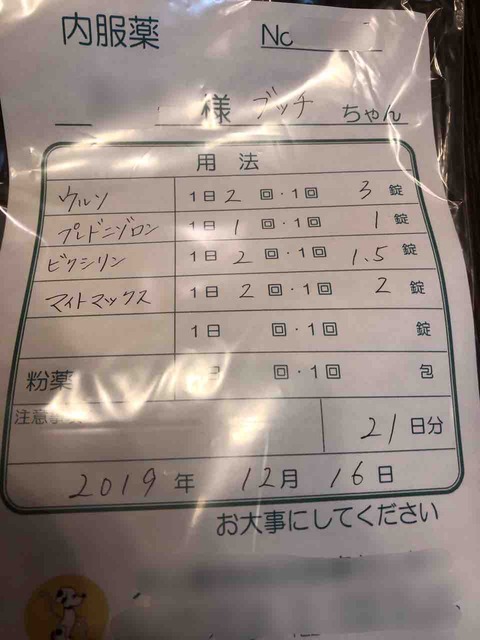 内服薬 No
様 ブッチ ちゃん
用法
ウルソ 1日 2 回・1回 3 錠
プレドニゾロン 1日 1 回・1回 1 錠
ビクシリン 1日 2 回・1回 1.5 錠
マイトマックス 1日 2 回・1回 2 錠
1日 回・1回 錠
粉薬 回・1回 包
注意事項 21 日分
2019 年 12 月 16 日
お大事にしてください